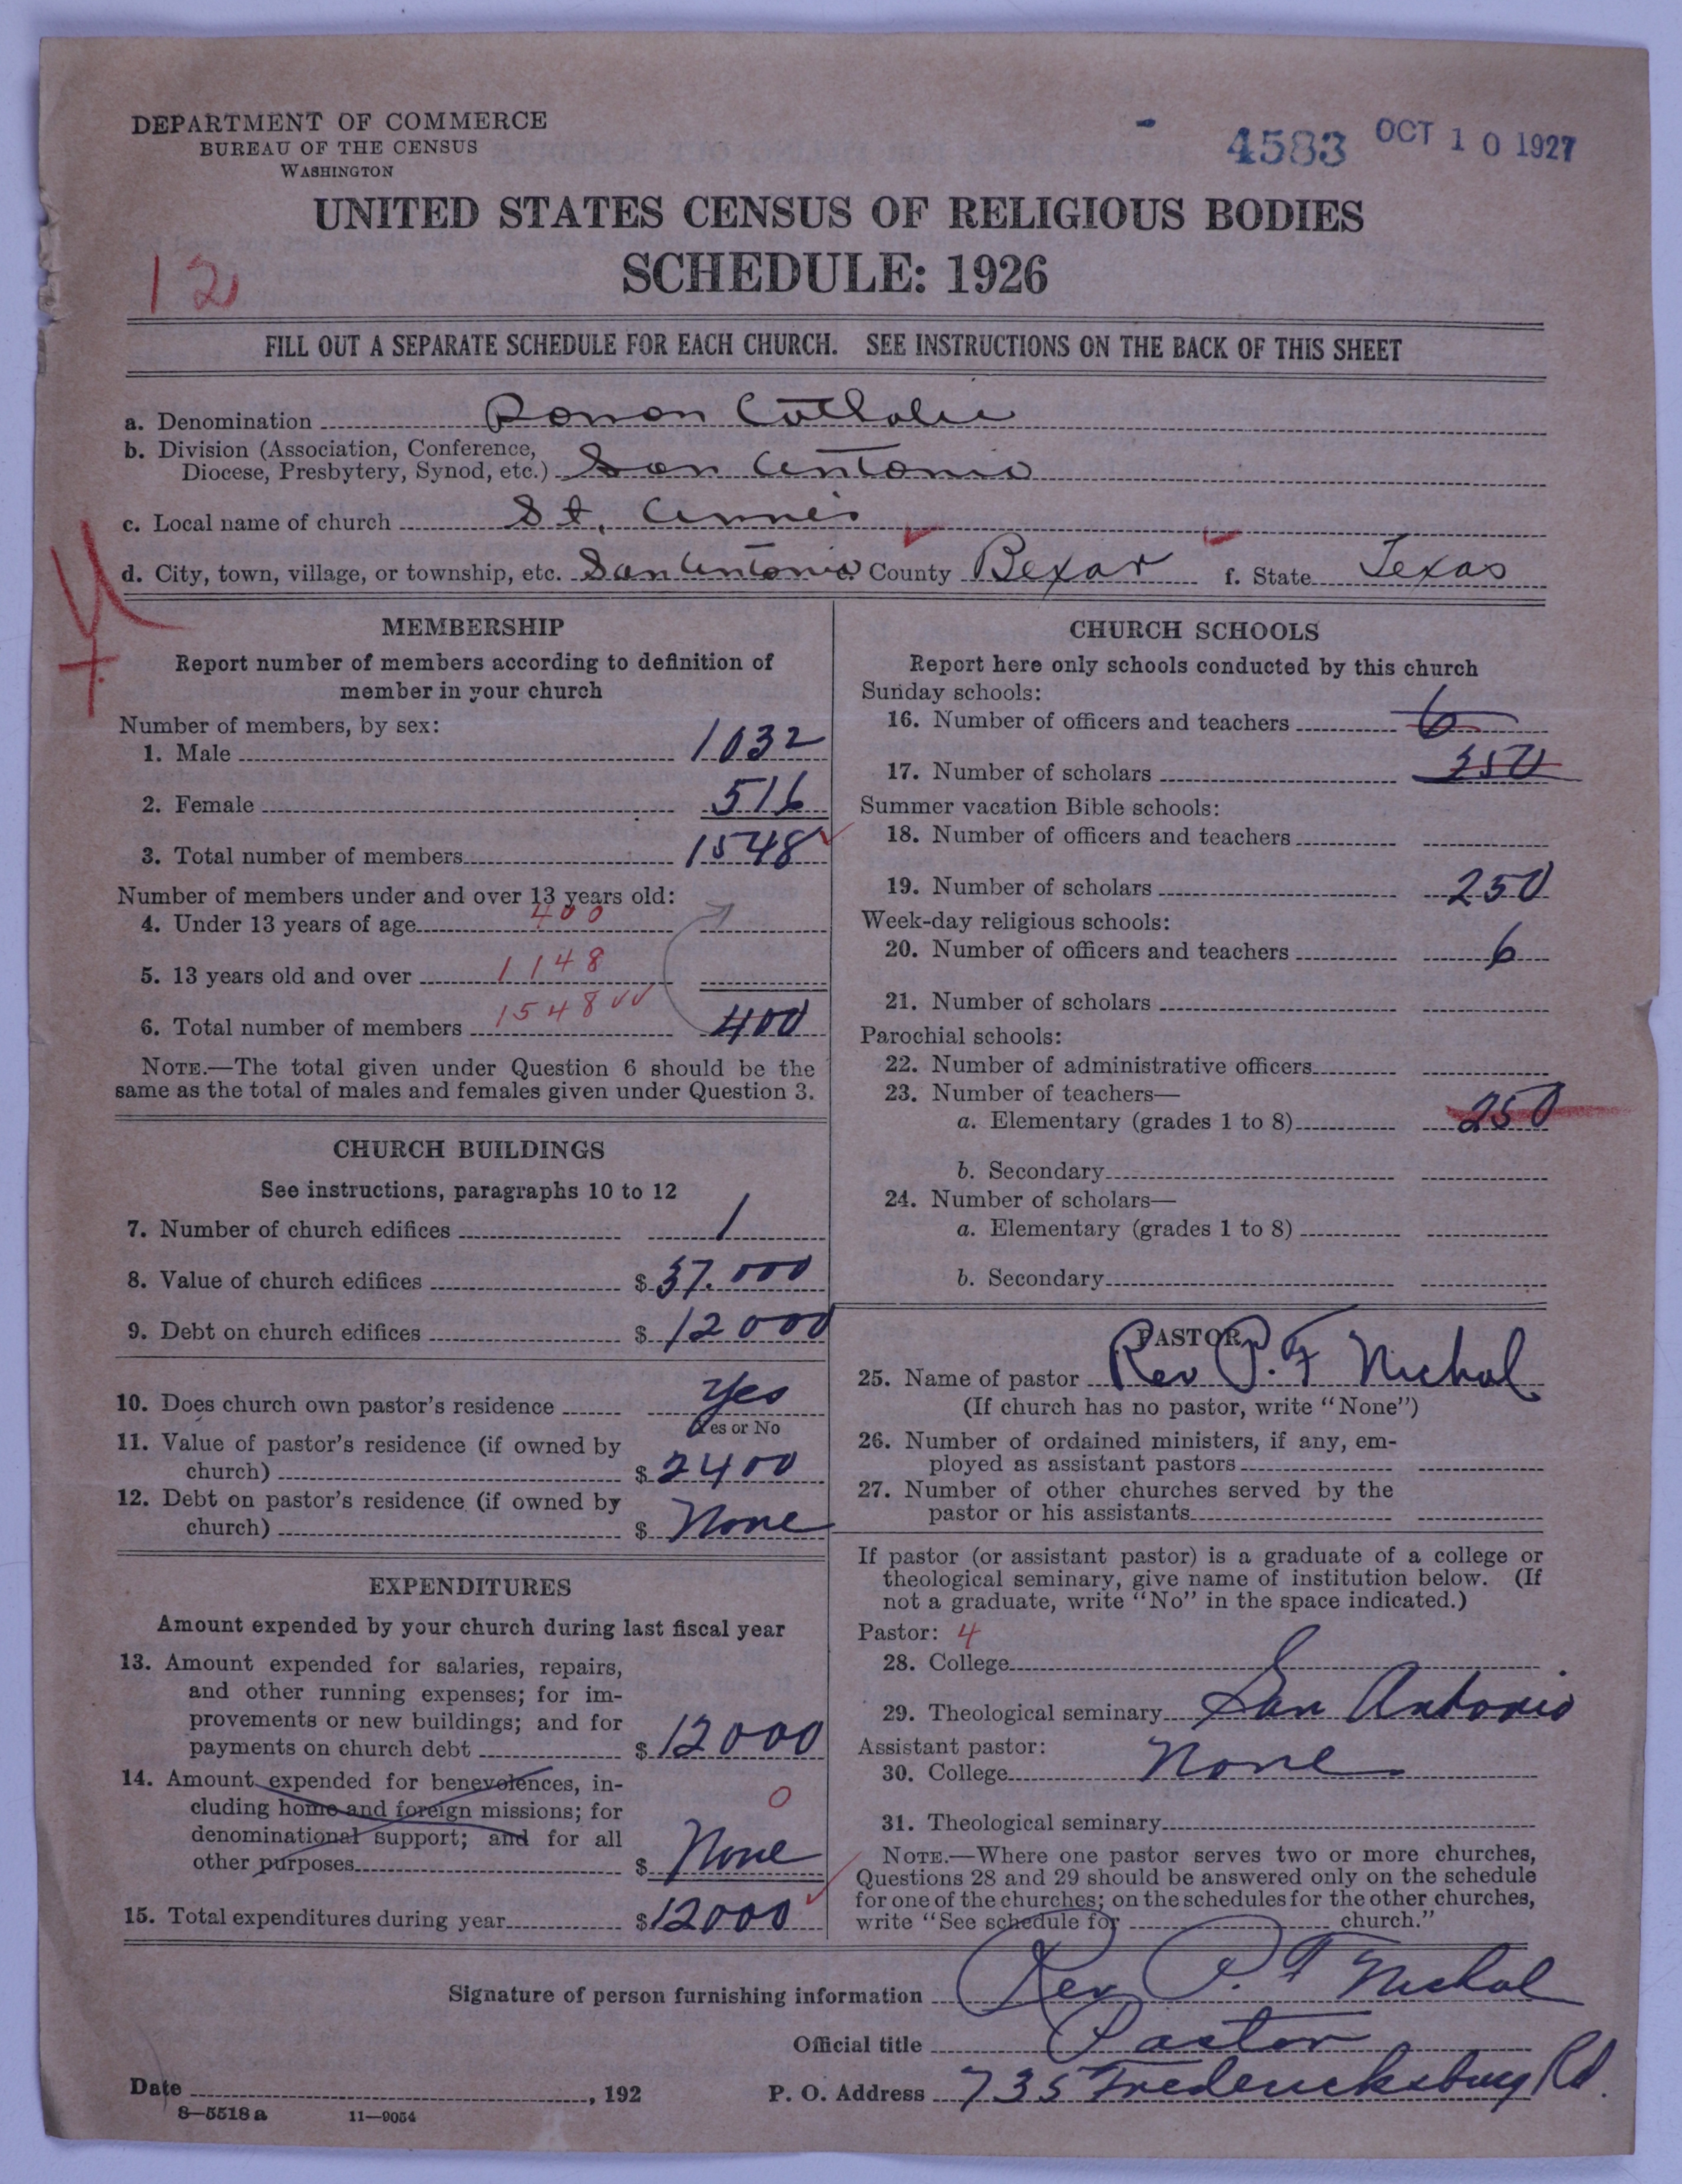 DEPARTMENT OF COMMERCE
BUREAU OF THE CENSUS
WASHINGTON
4583 OCT 10 1927
UNITED STATES CENSUS OF RELIGIOUS BODIES
SCHEDULE: 1926
12
FILL OUT A SEPARATE SCHEDULE FOR EACH CHURCH. SEE INSTRUCTIONS ON THE BACK OF THIS SHEET
a. Denomination Roman Catholic
b. Division (Association, Conference,
Diocese, Presbytery, Synod, etc.) San Antonio
c. Local name of church St. Annes
d. City, town, village, or township, etc. San Antonio County Bexar f. State Texas
MEMBERSHIP
Report number of members according to definition of
member in your church
Number of members, by sex:
1. Male 1032
2. Female 516
3. Total number of members 1548
Number of members under and over 13 years old:
4. Under 13 years of age 400
5. 13 years old and over 1148
6. Total number of members 1548 400
NOTE.—The total given under Question 6 should be the
same as the total of males and females given under Question 3.
CHURCH BUILDINGS
See instructions, paragraphs 10 to 12
7. Number of church edifices 1
8. Value of church edifices $ 37.000
9. Debt on church edifices $ 12000
10. Does church own pastor's residence Yes
Yes or No
11. Value of pastor's residence (if owned by
church) $ 2400
12. Debt on pastor's residence (if owned by
church) $ None
EXPENDITURES
Amount expended by your church during last fiscal year
13. Amount expended for salaries, repairs,
and other running expenses; for im-
provements or new buildings; and for
payments on church debt $ 12000
14. Amount expended for benevolences, in-
cluding home and foreign missions; for 0
denominational support; and for all
other purposes $ None
15. Total expenditures during year $ 12000
CHURCH SCHOOLS
Report here only schools conducted by this church
Sunday schools:
16. Number of officers and teachers 6
17. Number of scholars 350
Summer vacation Bible schools:
18. Number of officers and teachers
19. Number of scholars 250
Week-day religious schools:
20. Number of officers and teachers 6
21. Number of scholars
Parochial schools:
22. Number of administrative officers
23. Number of teachers—
a. Elementary (grades 1 to 8) 250
b. Secondary
24. Number of scholars—
a. Elementary (grades 1 to 8)
b. Secondary
PASTOR
25. Name of pastor Rev P. F Nichol
(If church has no pastor, write "None")
26. Number of ordained ministers, if any, em-
ployed as assistant pastors
27. Number of other churches served by the
pastor or his assistants
If pastor (or assistant pastor) is a graduate of a college or
theological seminary, give name of institution below. (If
not a graduate, write "No" in the space indicated.)
Pastor: 4
28. College
29. Theological seminary San Antonio
Assistant pastor:
30. College None
31. Theological seminary
NOTE.—Where one pastor serves two or more churches,
Questions 28 and 29 should be answered only on the schedule
for one of the churches; on the schedules for the other churches,
write "See schedule for church."
Signature of person furnishing information Rev P. F Nichol
Official title Pastor
Date , 192 P. O. Address 735 Fredericksburg Rd.
8—5518 a 11—9054